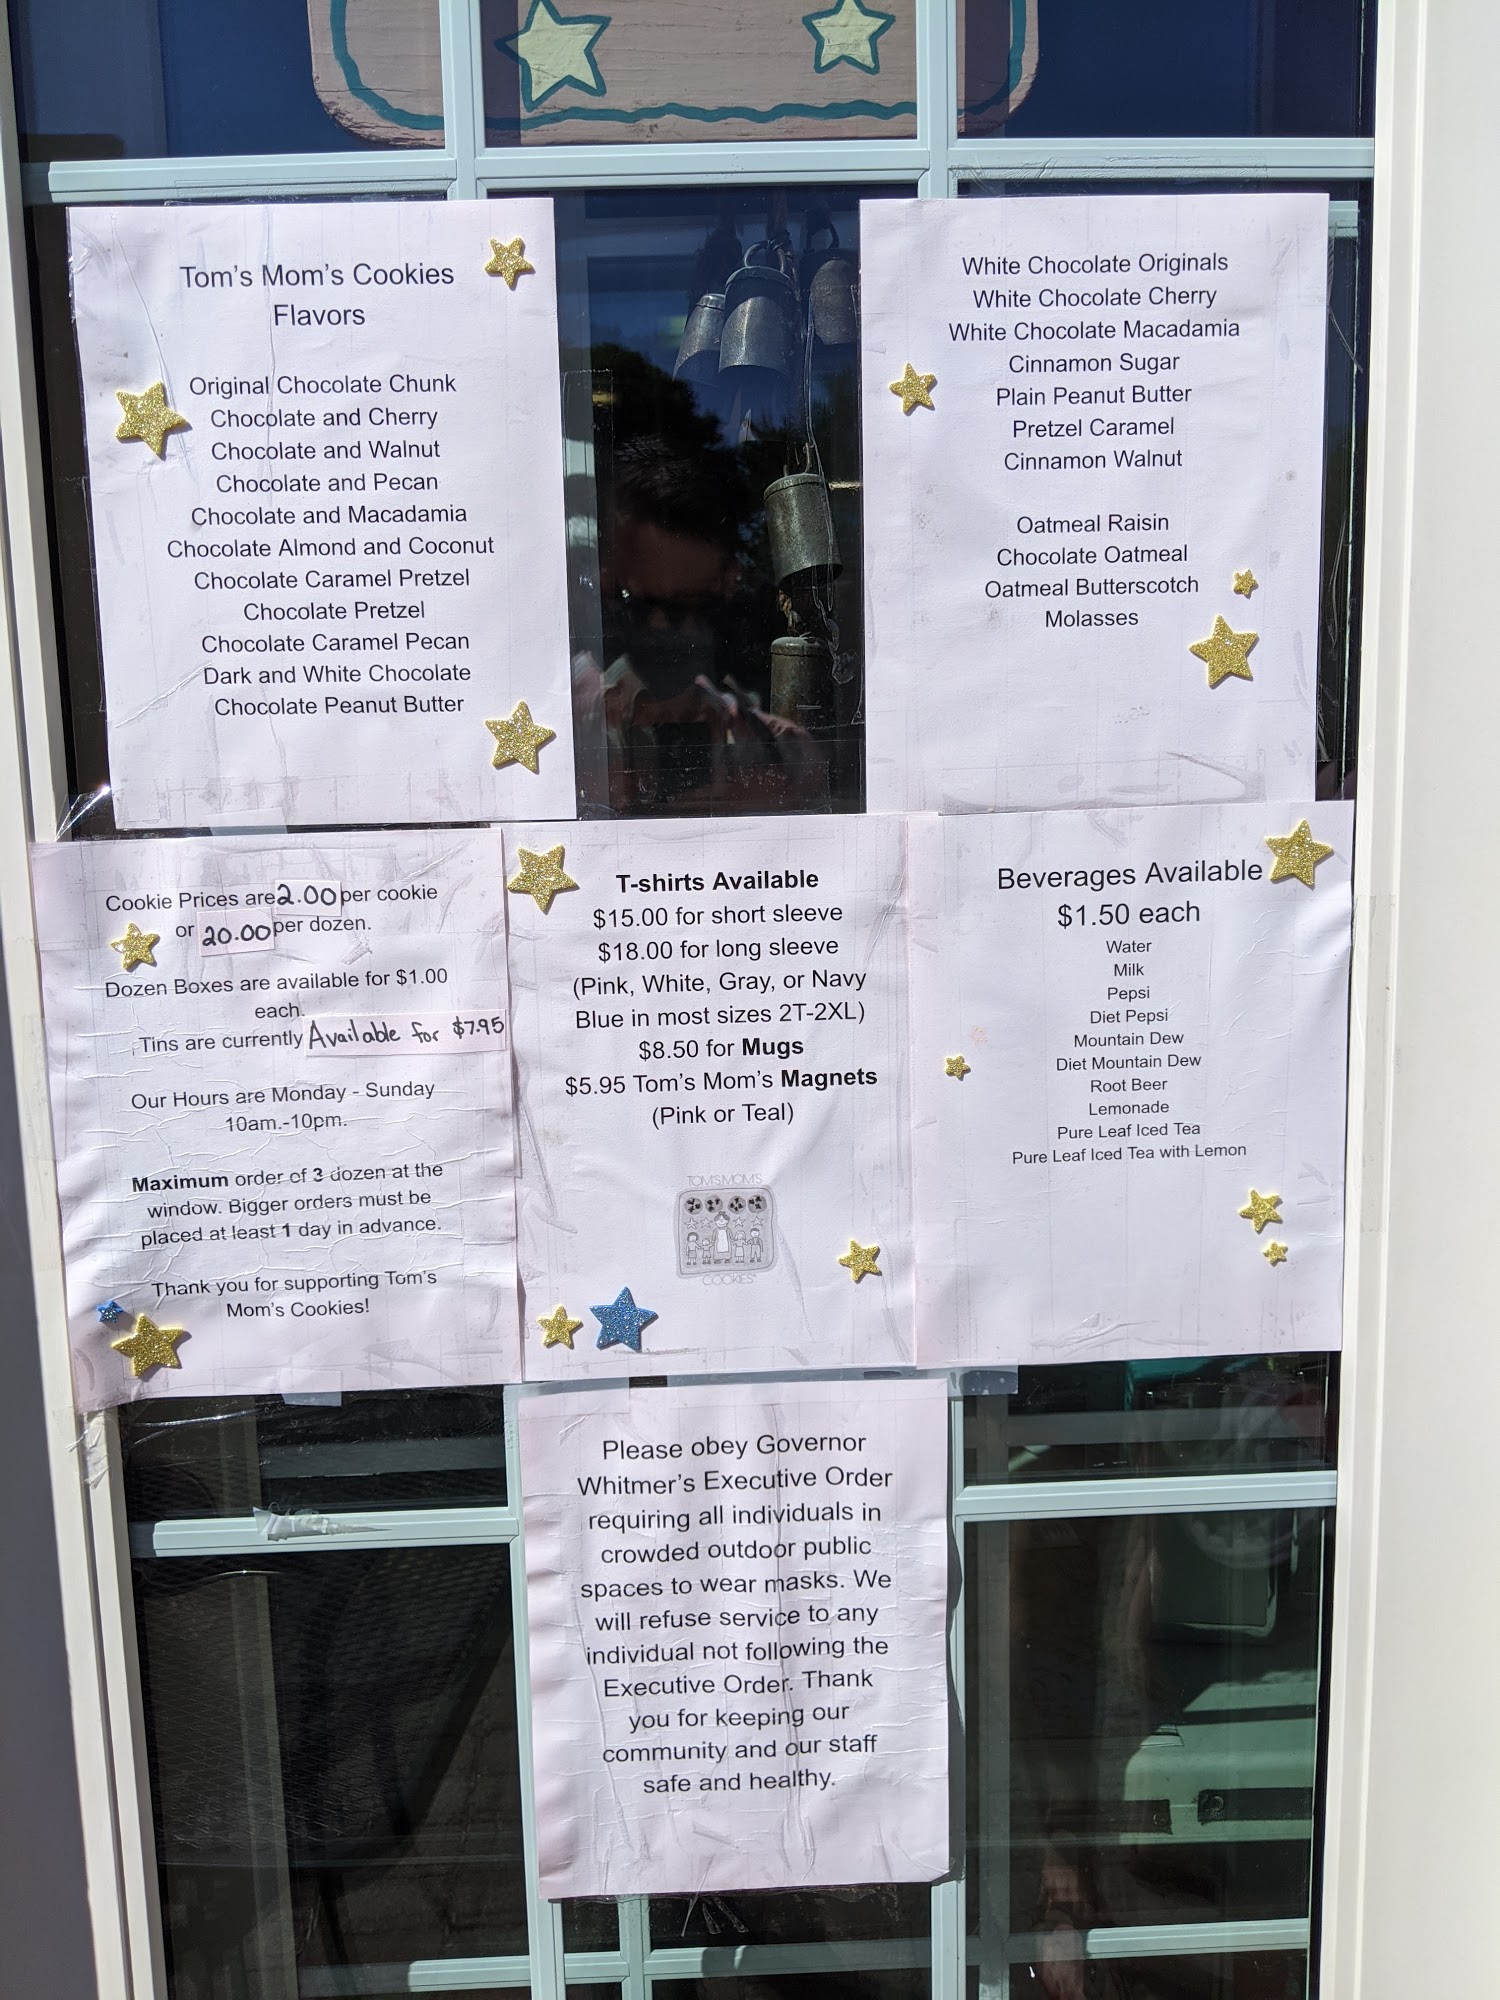 Tom's Mom's Cookies
Flavors
Original Chocolate Chunk
Chocolate and Cherry
Chocolate and Walnut
Chocolate and Pecan
Chocolate and Macadamia
Chocolate Almond and Coconut
Chocolate Caramel Pretzel
Chocolate Pretzel
Chocolate Caramel Pecan
Dark and White Chocolate
Chocolate Peanut Butter
White Chocolate Originals
White Chocolate Cherry
White Chocolate Macadamia
Cinnamon Sugar
Plain Peanut Butter
Pretzel Caramel
Cinnamon Walnut
Oatmeal Raisin
Chocolate Oatmeal
Oatmeal Butterscotch
Molasses
Cookie Prices are 2.00 per cookie
or 20.00 per dozen.
Dozen Boxes are available for $1.00
each.
Tins are currently Available for $7.95
Our Hours are Monday - Sunday
10am.-10pm.
Maximum order of 3 dozen at the
window. Bigger orders must be
placed at least 1 day in advance.
Thank you for supporting Tom's
Mom's Cookies!
T-shirts Available
$15.00 for short sleeve
$18.00 for long sleeve
(Pink, White, Gray, or Navy
Blue in most sizes 2T-2XL)
$8.50 for Mugs
$5.95 Tom's Mom's Magnets
(Pink or Teal)
TOM'S MOM'S
COOKIES
Beverages Available
$1.50 each
Water
Milk
Pepsi
Diet Pepsi
Mountain Dew
Diet Mountain Dew
Root Beer
Lemonade
Pure Leaf Iced Tea
Pure Leaf Iced Tea with Lemon
Please obey Governor
Whitmer's Executive Order
requiring all individuals in
crowded outdoor public
spaces to wear masks. We
will refuse service to any
individual not following the
Executive Order. Thank
you for keeping our
community and our staff
safe and healthy.